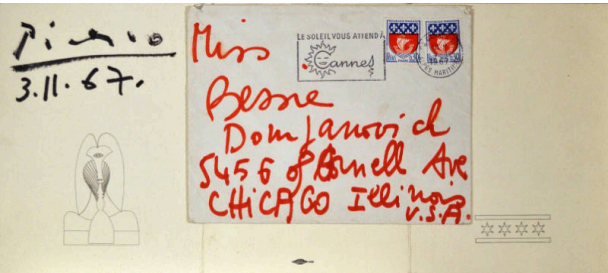 Picasso
3.11.67.
LE SOLEIL VOUS ATTEND À
Cannes
Miss
Besse
Domjanovich
5456 Cornell Ave
CHICAGO Illinois
U.S.A.